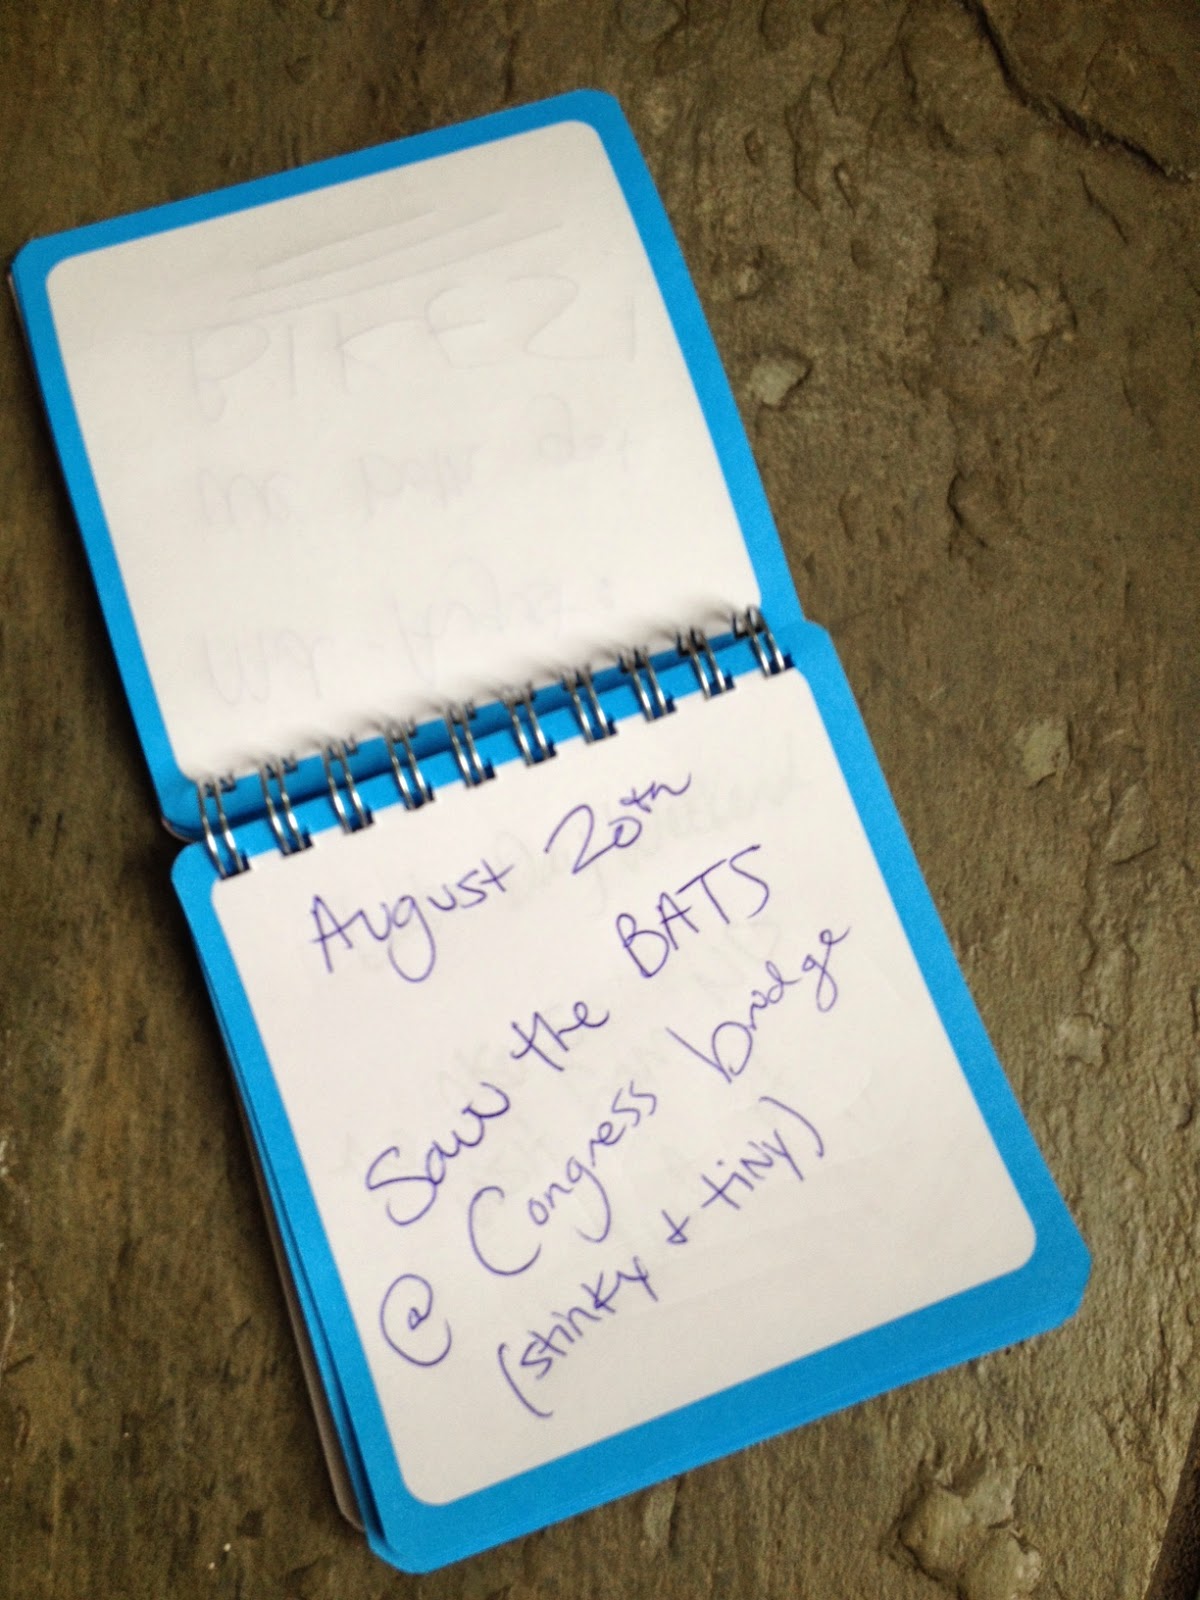 August 20th
Saw the BATS
@ Congress bridge
(stinky & tiny)